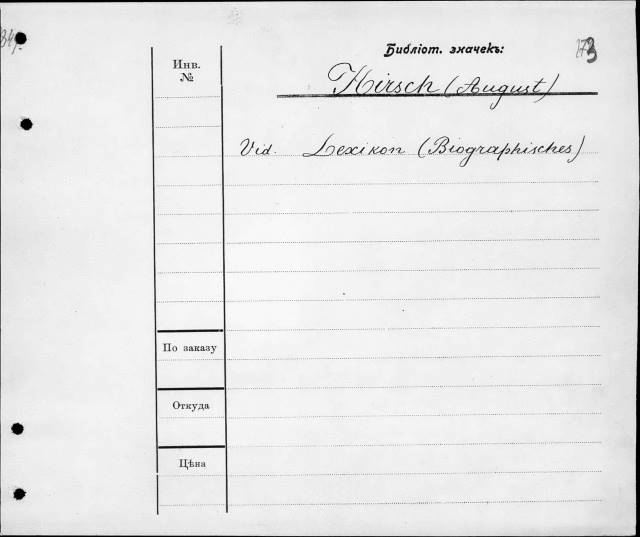 Библіот. значекъ:
Инв.
№
Hirsch (August)
Vid. Lexikon (Biographisches)
По заказу
Откуда
Цѣна